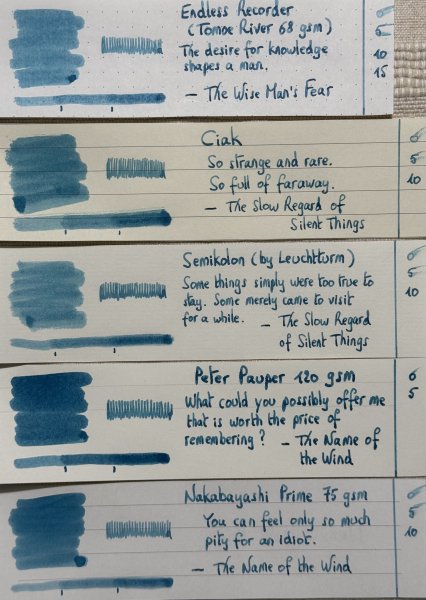 Endless Recorder
(Tomoe River 68 gsm)
The desire for knowledge
shapes a man.
— The Wise Man's Fear
0
5
10
15
Ciak
So strange and rare.
So full of faraway.
— The Slow Regard of
Silent Things
0
5
10
Semikolon (by Leuchtturm)
Some things simply were too true to
stay. Some merely came to visit
for a while. — The Slow Regard
of Silent Things
0
5
10
Peter Pauper 120 gsm
What could you possibly offer me
that is worth the price of
remembering? — The Name of
the Wind
0
5
Nakabayashi Prime 75 gsm
You can feel only so much
pity for an idiot.
— The Name of the Wind
0
5
10